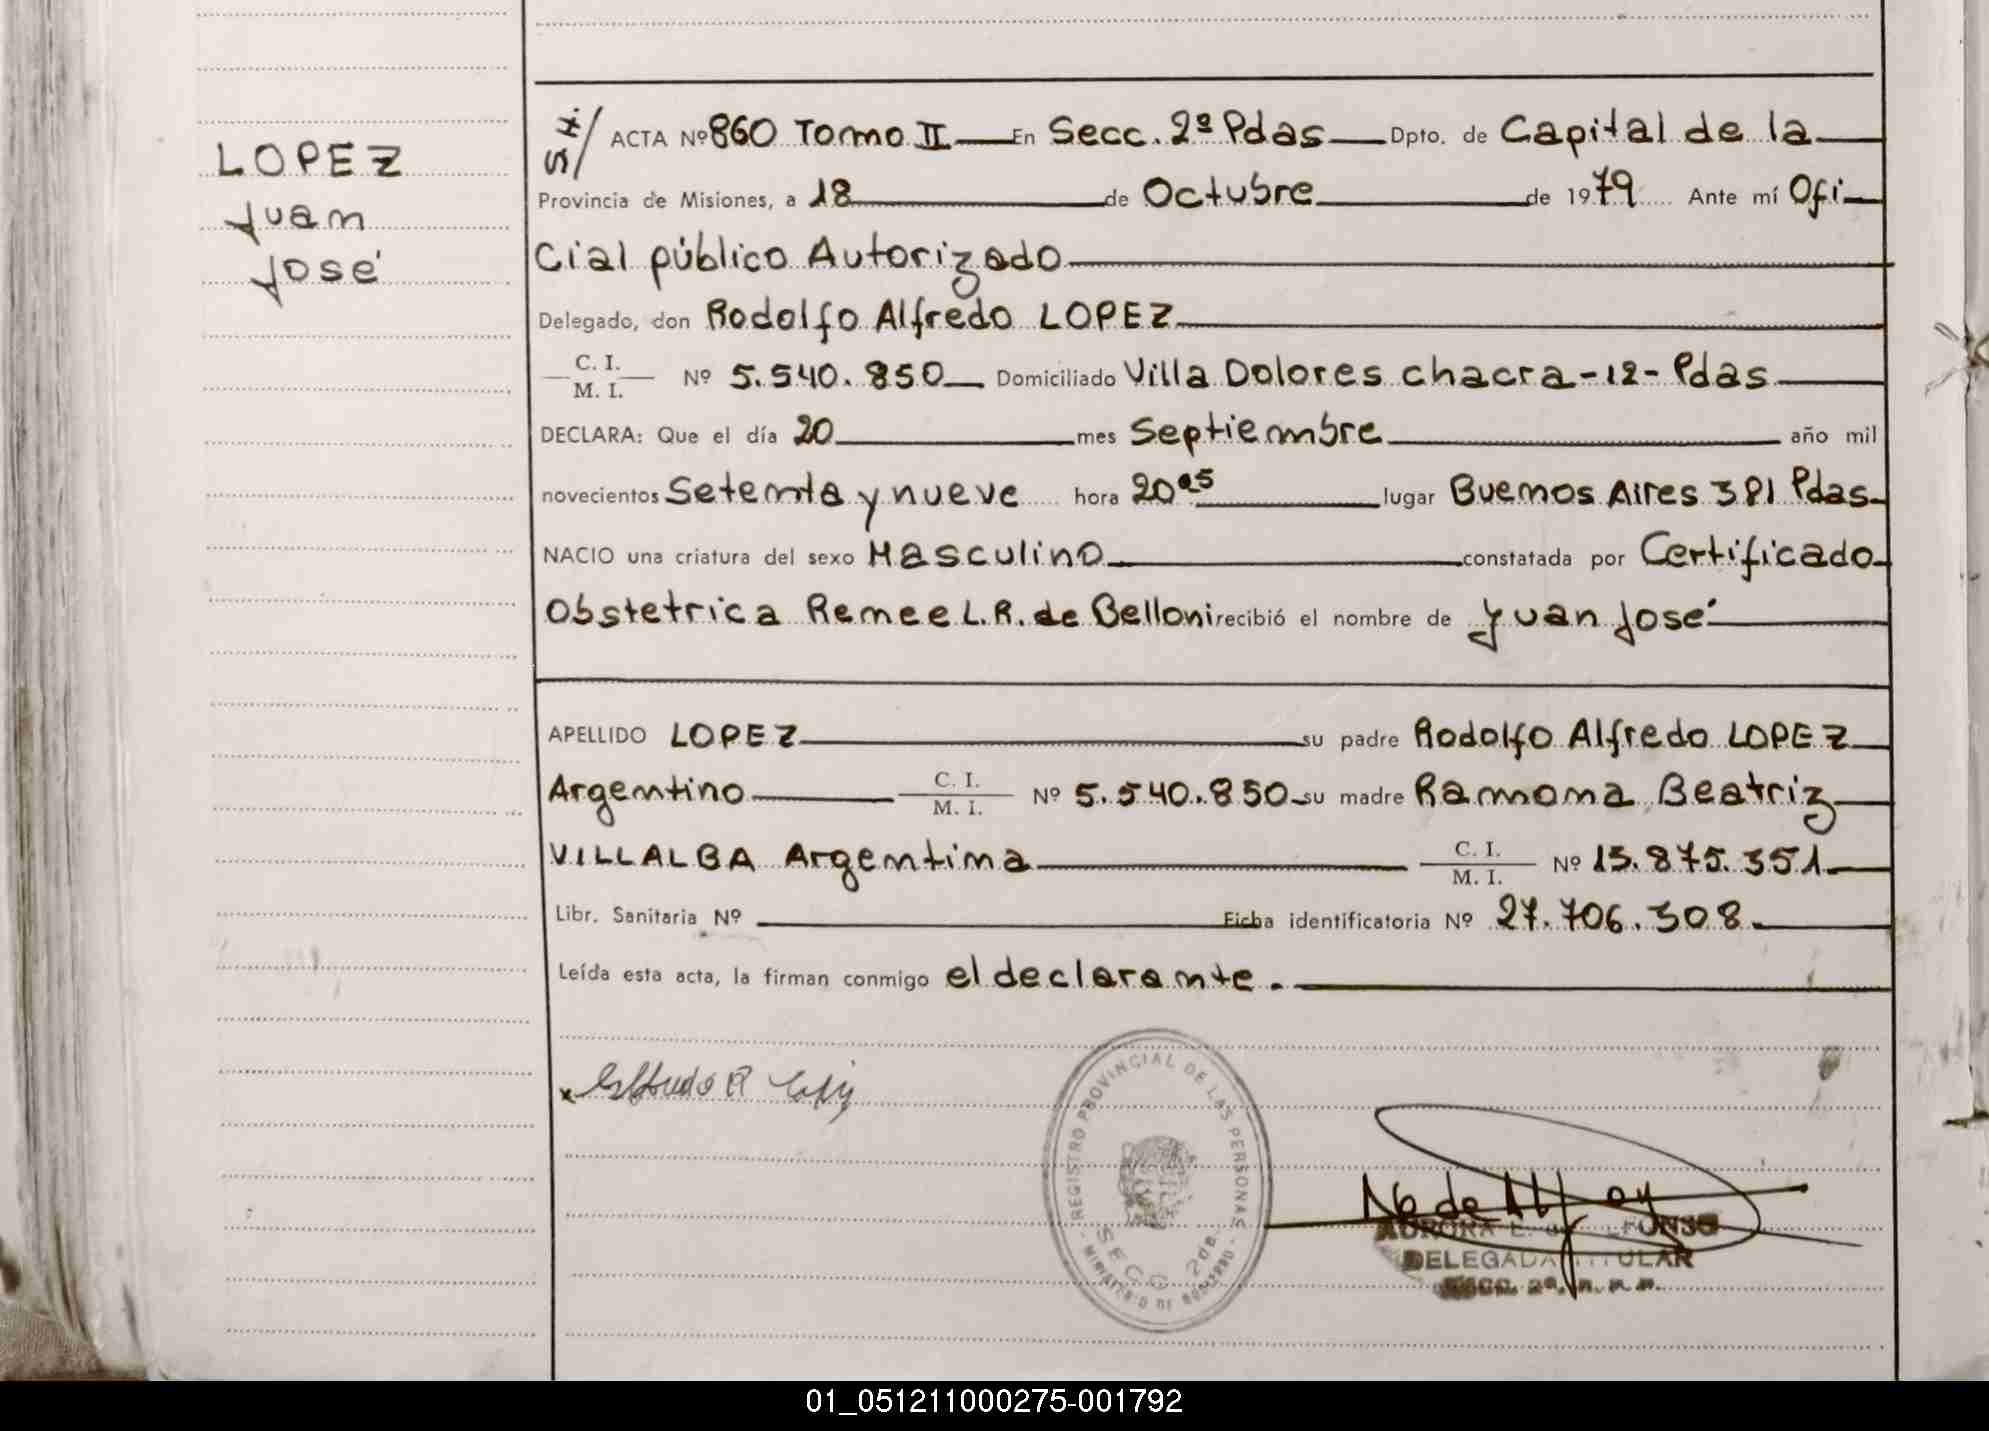 LOPEZ
Juan
José
S/H. ACTA Nº 860 Tomo II En Secc. 2ª Pdas Dpto. de Capital de la
Provincia de Misiones, a 18 de Octubre de 1979 Ante mí Ofi
Cial público Autorizado
Delegado, don Rodolfo Alfredo LOPEZ
C. I.
M. I. Nº 5.540.850 Domiciliado Villa Dolores chacra-12-Pdas
DECLARA: Que el día 20 mes Septiembre año mil
novecientos Setenta y nueve hora 20 lugar Buenos Aires 381 Pdas
NACIO una criatura del sexo Masculino constatada por Certificado
Obstetrica Renee L.R. de Belloni recibió el nombre de Juan José
APELLIDO LOPEZ su padre Rodolfo Alfredo LOPEZ
Argentino C. I.
M. I. Nº 5.540.850 su madre Ramona Beatriz
VILLALBA Argentina C. I.
M. I. Nº 13.875.351
Libr. Sanitaria Nº Ficha identificatoria Nº 27.706.308
Leída esta acta, la firman conmigo el declarante.
REGISTRO PROVINCIAL DE LAS PERSONAS
SECC 2da.
MINISTERIO DE GOBIERNO
AURORA E. DELEGADA TITULAR
01_051211000275-001792